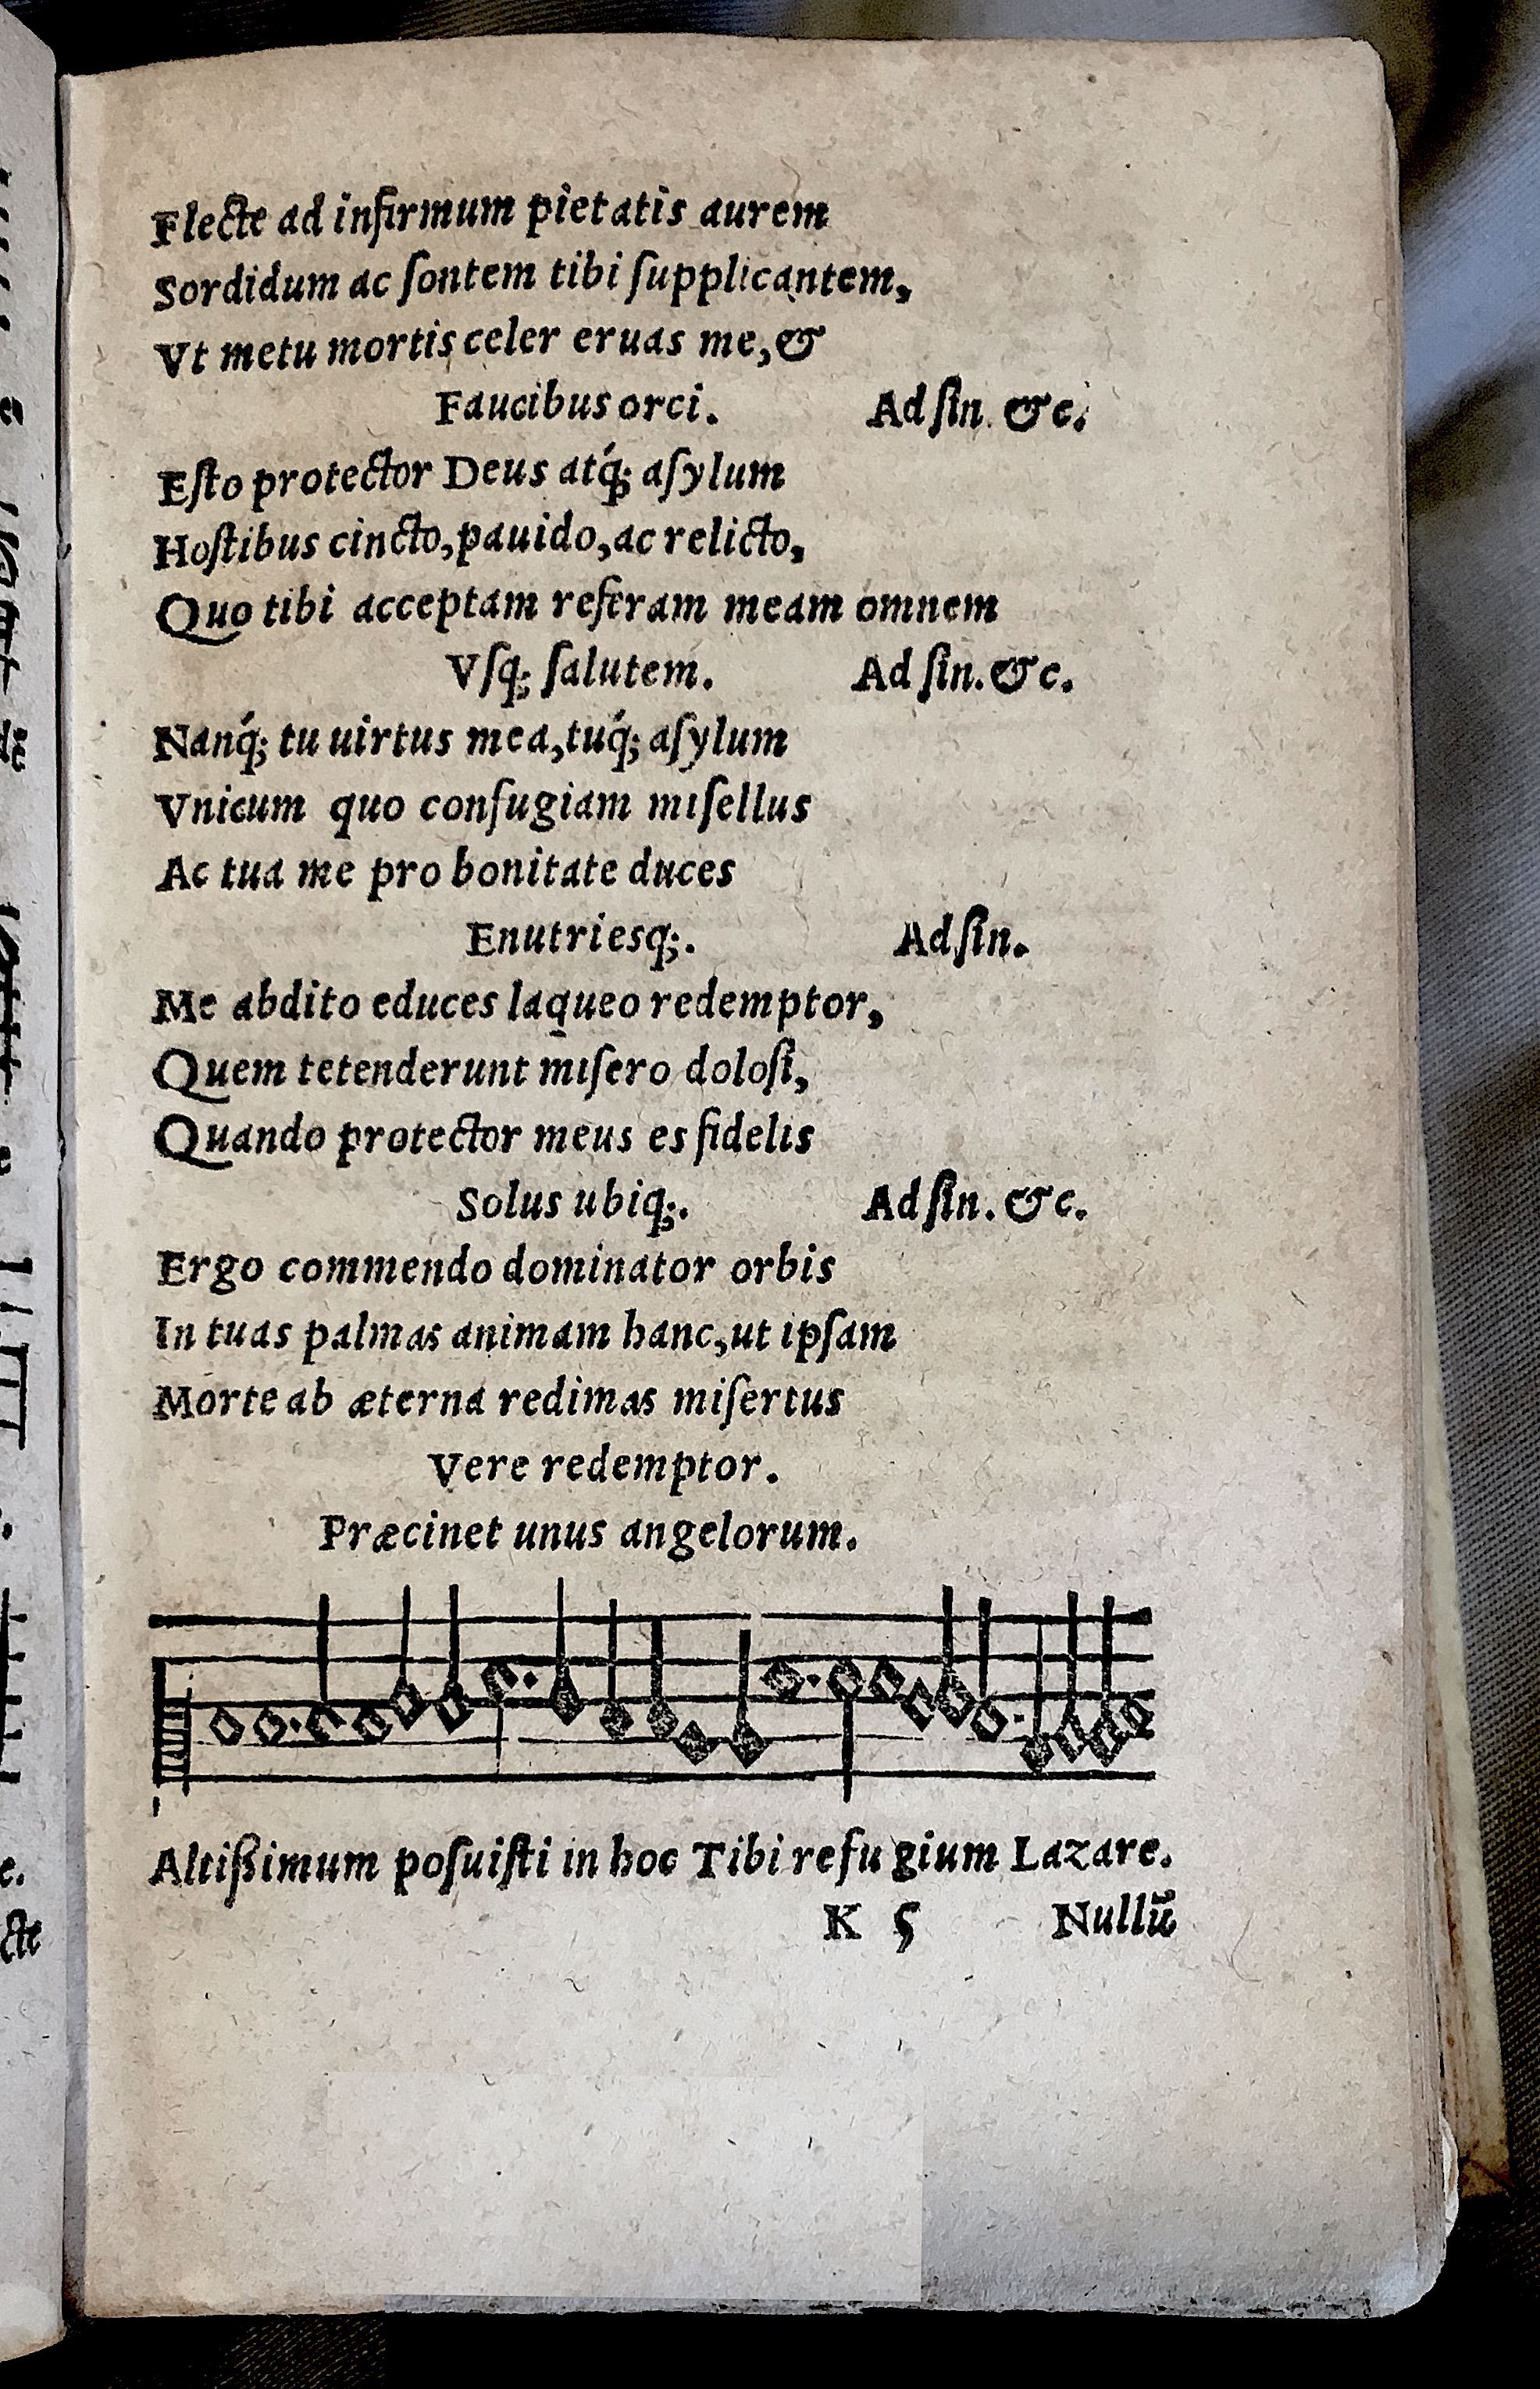 Flecte ad infirmum pietatis aurem
Sordidum ac ſontem tibi ſupplicantem,
Vt metu mortis celer eruas me, &
Faucibus orci. Ad ſin. &c.
Eſto protector Deus atq́; aſylum
Hoſtibus cincto, pauido, ac relicto,
Quo tibi acceptam referam meam omnem
Vſq; ſalutem. Ad ſin. &c.
Nanq́; tu uirtus mea, tuq́; aſylum
Vnicum quo confugiam miſellus
Ac tua me pro bonitate duces
Enutriesq;. Ad ſin.
Me abdito educes laqueo redemptor,
Quem tetenderunt miſero doloſi,
Quando protector meus es fidelis
Solus ubiq;. Ad ſin. &c.
Ergo commendo dominator orbis
In tuas palmas animam hanc, ut ipſam
Morte ab æterna redimas miſertus
Vere redemptor.
Præcinet unus angelorum.
Altißimum poſuiſti in hoc Tibi refugium Lazare.
K 5 Nullū